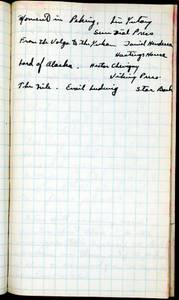 Moment in Peking, Lin Yutang
Sun Dial Press
From the Volga to the Yukon Daniel Henderson
Hastings House
Lord of Alaska. Hector Chevigny
Viking Press
The Nile. Emil Ludwig Star Book